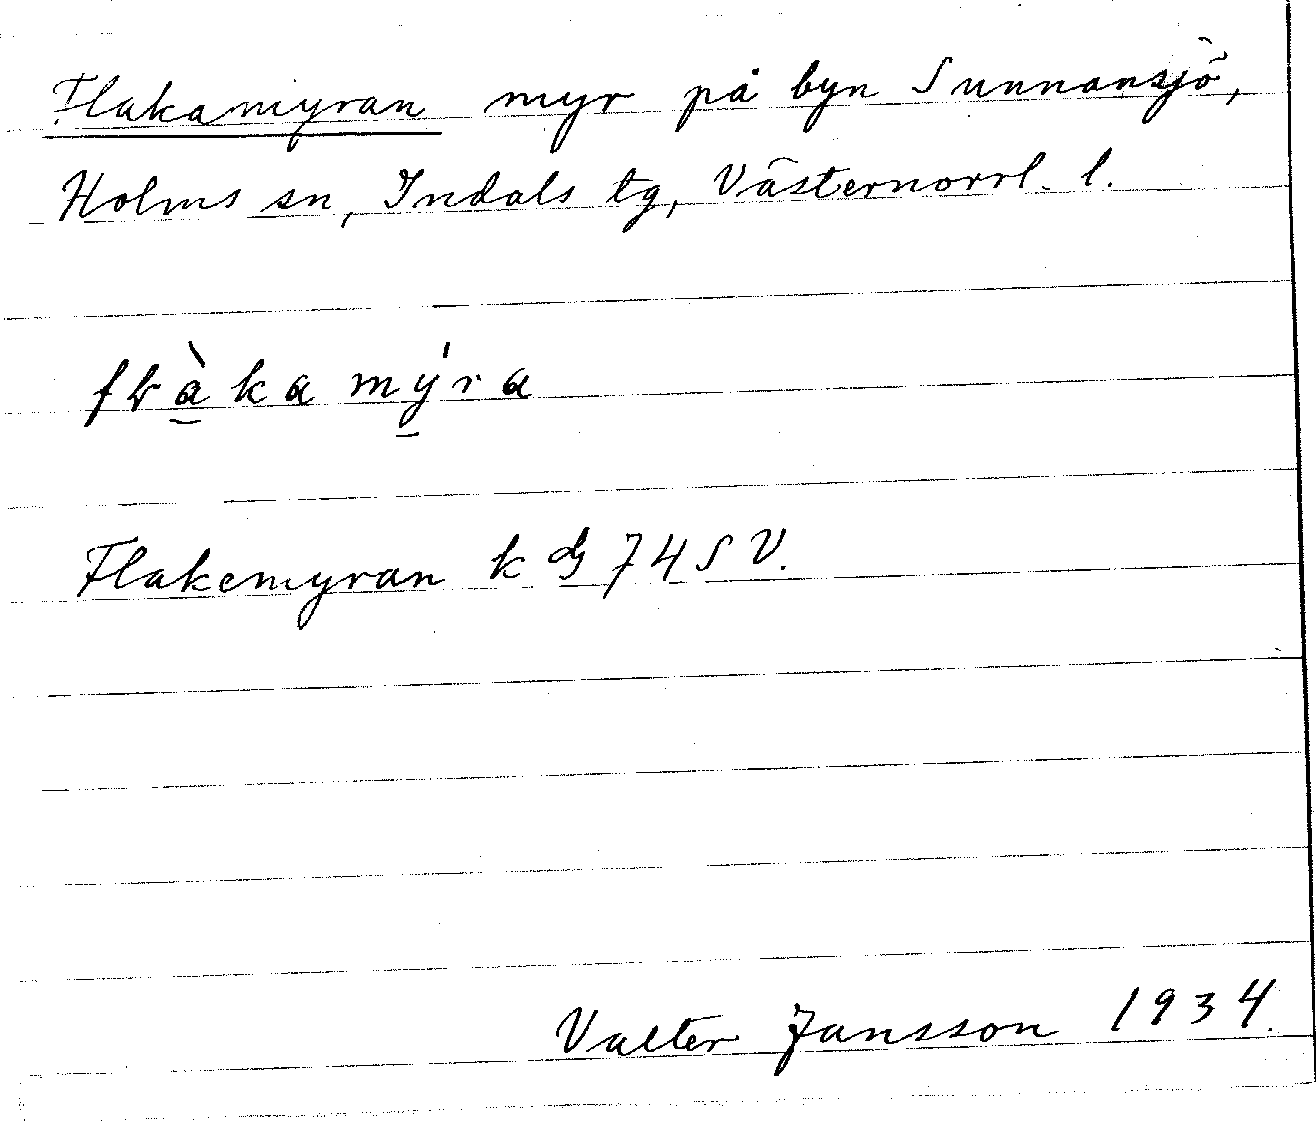 Flakamyran myr på byn Sunnansjö,
Holms sn, Indals tg, Västernorrl. l.
flàkamýra
Flakemyran k dg 74 SV.
Valter Jansson 1934.